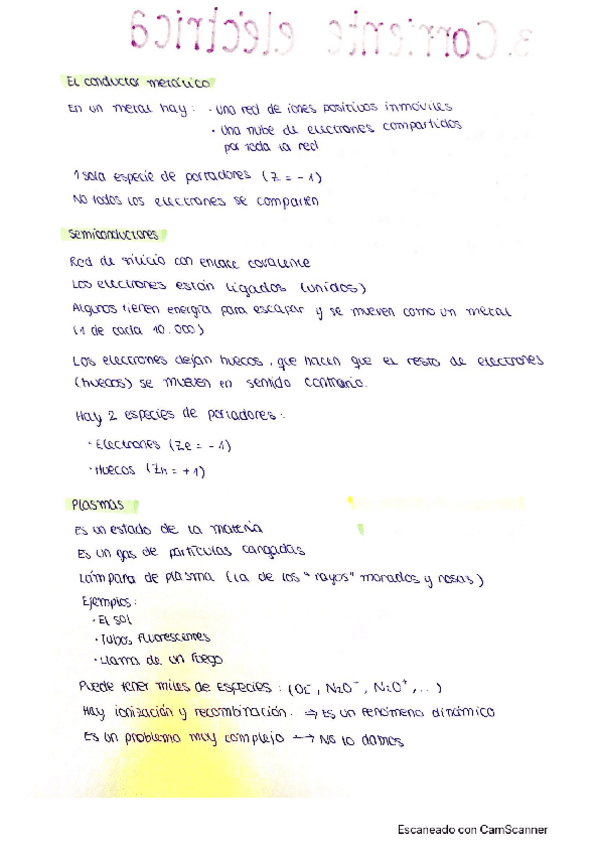 3. Corriente eléctrica
El conductor metálico
En un metal hay: · una red de iones positivos inmóviles
· una nube de electrones compartidos
por toda la red
1 sola especie de portadores (Z = -1)
No todos los electrones se comparten
Semiconductores
Red de silicio con enlace covalente
Los electrones están ligados (unidos)
Algunos tienen energía para escapar y se mueven como un metal
(1 de cada 10.000)
Los electrones dejan huecos, que hacen que el resto de electrones
(huecos) se mueven en sentido contrario.
Hay 2 especies de portadores:
· Electrones (Ze = -1)
· Huecos (Zh = +1)
Plasmas
Es un estado de la materia
Es un gas de partículas cargadas
Lámpara de plasma (la de los "rayos" morados y rosas)
Ejemplos:
· El sol
· Tubos fluorescentes
· Llama de un fuego
Puede tener miles de especies: (O2⁻, N2O⁻, N2O⁺, ...)
Hay ionización y recombinación. ⇒ Es un fenómeno dinámico
Es un problema muy complejo → No lo damos
Escaneado con CamScanner